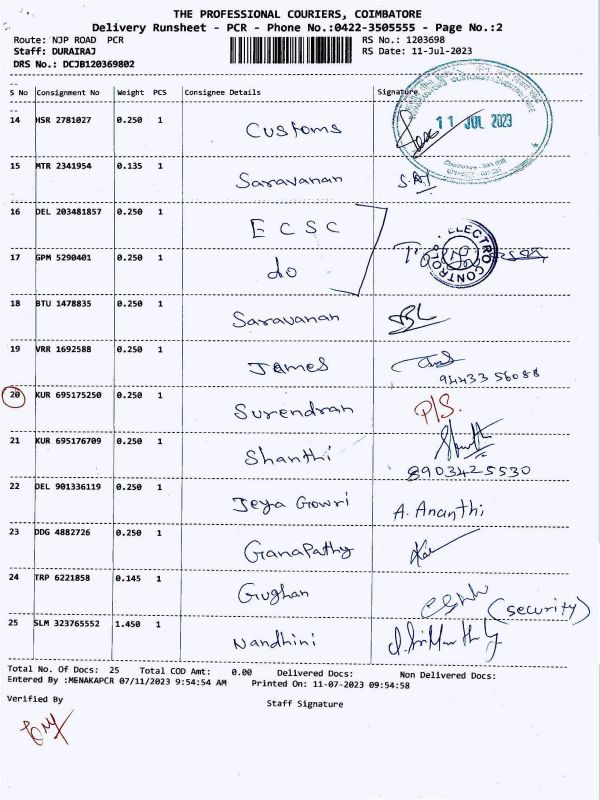 THE PROFESSIONAL COURIERS, COIMBATORE
Delivery Runsheet - PCR - Phone No.:0422-3505555 - Page No.:2
Route: NJP ROAD PCR RS No.: 1203698
Staff: DURAIRAJ RS Date: 11-Jul-2023
DRS No.: DCJB120369802
S No Consignment No Weight PCS Consignee Details Signature
14 HSR 2781027 0.250 1 Customs 11 JUL 2023
15 MTR 2341954 0.135 1 Saravanan
16 DEL 203481857 0.250 1 ECSC
17 GPM 5290401 0.250 1 do ELECTRO CONTROLS
18 BTU 1478835 0.250 1 Saravanan
19 VRR 1692588 0.250 1 James
94433 56088
20 KUR 695175250 0.250 1 Surendran P/S.
21 KUR 695176709 0.250 1 Shanthi
8903425530
22 DEL 901336119 0.250 1 Jeya Gowri A. Ananthi
23 DDG 4882726 0.250 1 Ganapathy
24 TRP 6221858 0.145 1 Gughan (security)
25 SLM 323765552 1.450 1 Nandhini
Total No. Of Docs: 25 Total COD Amt: 0.00 Delivered Docs: Non Delivered Docs:
Entered By :MENAKAPCR 07/11/2023 9:54:54 AM Printed On: 11-07-2023 09:54:58
Verified By Staff Signature